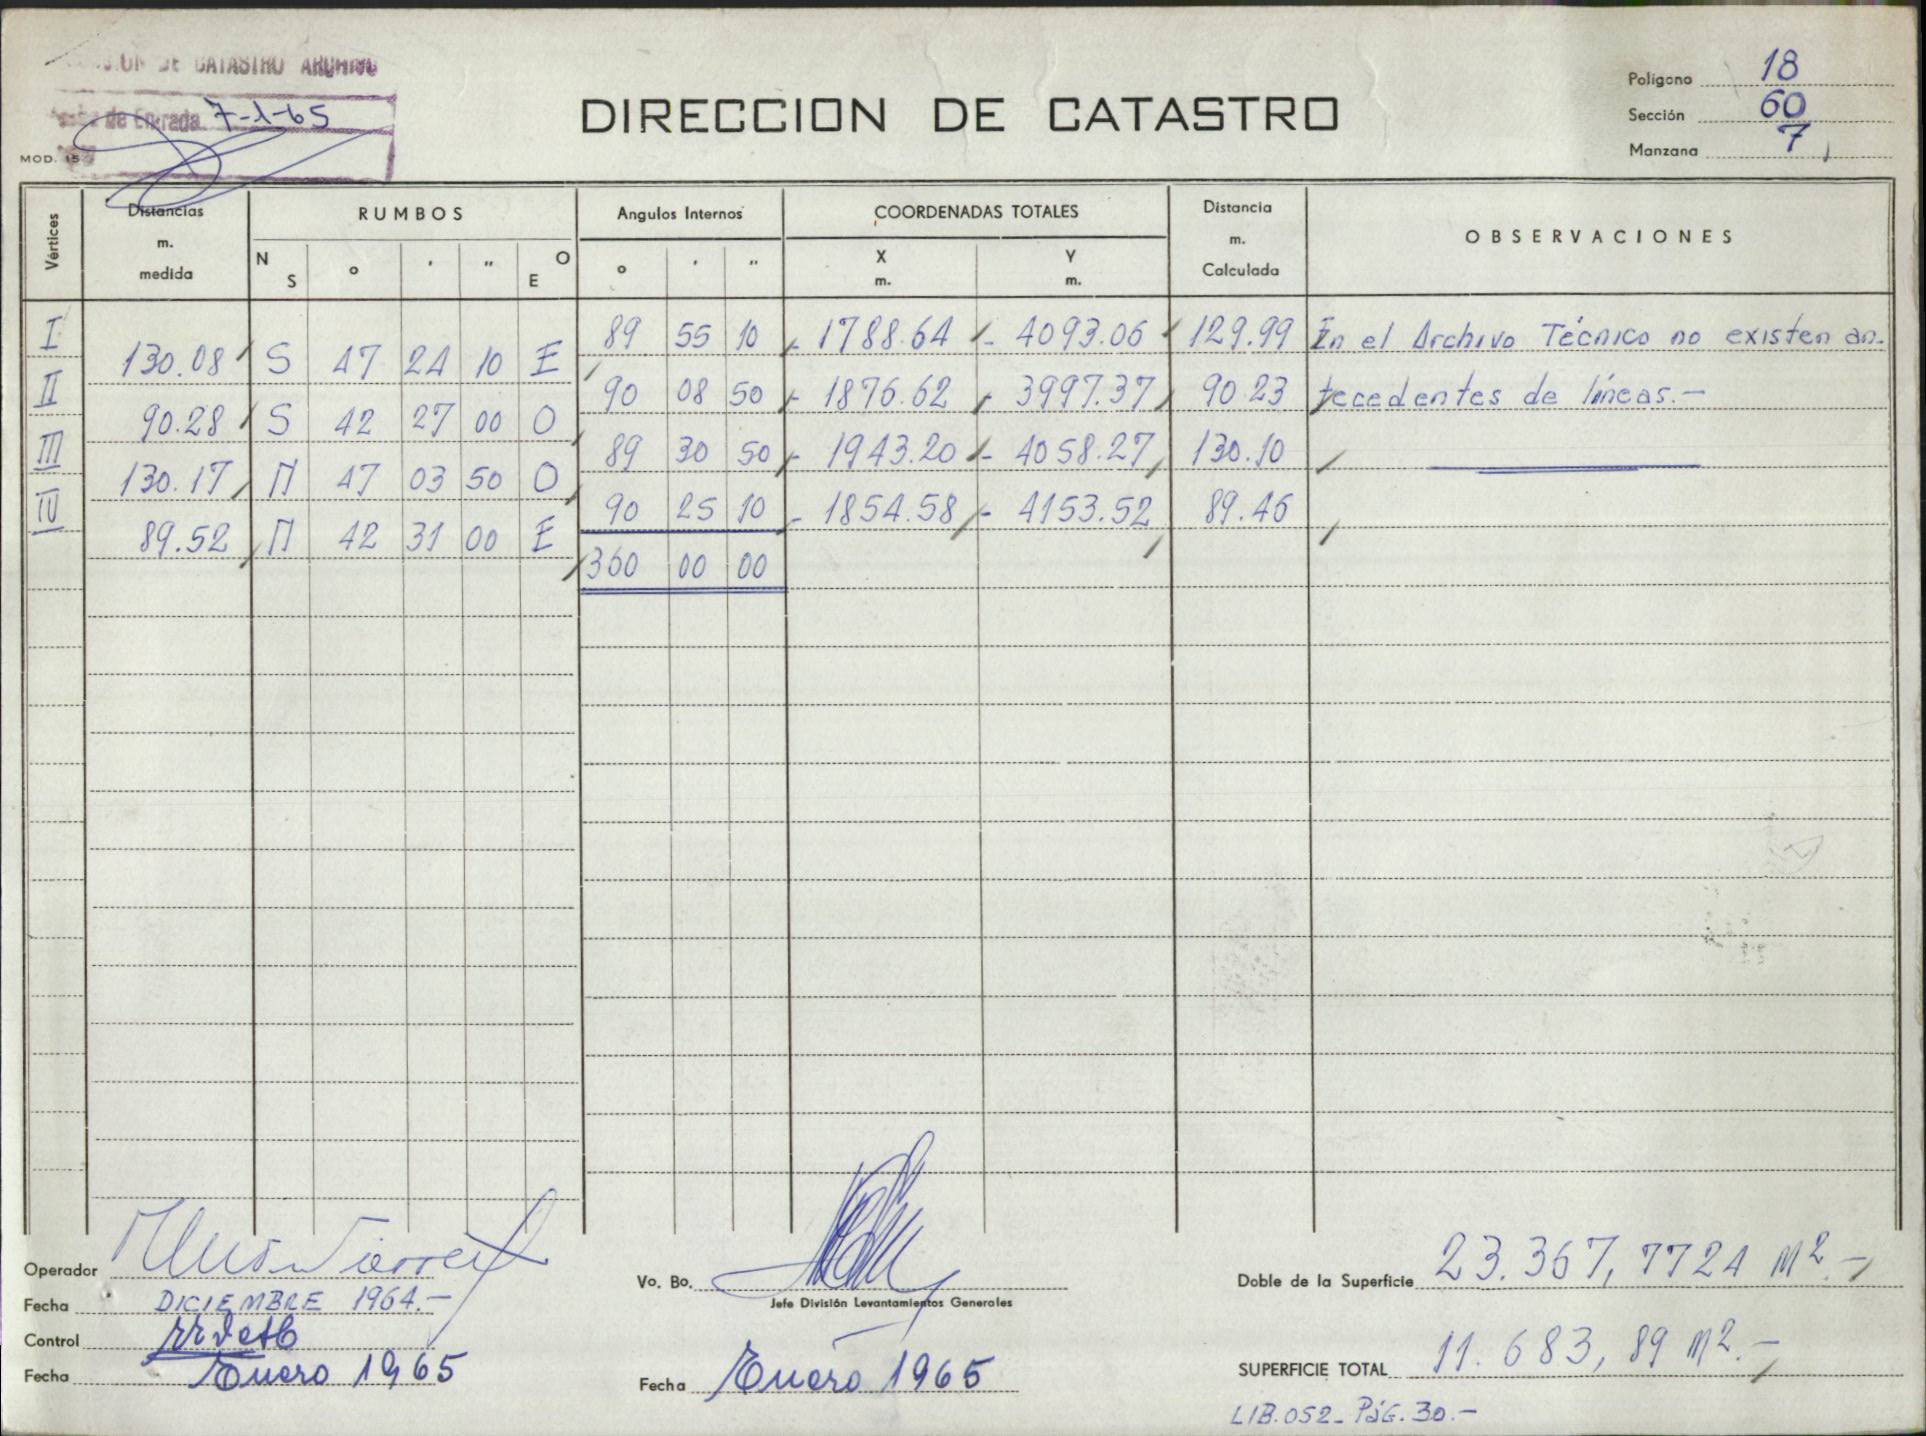 DE CATASTRO ARCHIVO
de Entrada 7-1-65
MOD. 15
DIRECCION DE CATASTRO
Polígono 18
Sección 60
Manzana 7
Vértices Distancias m. medida RUMBOS Angulos Internos COORDENADAS TOTALES Distancia m. Calculada OBSERVACIONES
N S o ' " O E o ' " X m. Y m.
I 89 55 10 - 1788.64 - 4093.06 129.99 En el Archivo Técnico no existen an-
130.08 S 47 24 10 E
II 90 08 50 - 1876.62 - 3997.37 90.23 tecedentes de líneas.-
90.28 S 42 27 00 O
III 89 30 50 - 1943.20 - 4058.27 130.10
130.17 N 47 03 50 O
IV 90 25 10 - 1854.58 - 4153.52 89.46
89.52 N 42 31 00 E
360 00 00
Operador
Fecha DICIEMBRE 1964.-
Control
Fecha Enero 1965
Vo. Bo.
Jefe División Levantamientos Generales
Fecha Enero 1965
Doble de la Superficie 23.367,7724 M2.-
SUPERFICIE TOTAL 11.683,89 M2.-
LIB.052- PÁG.30.-